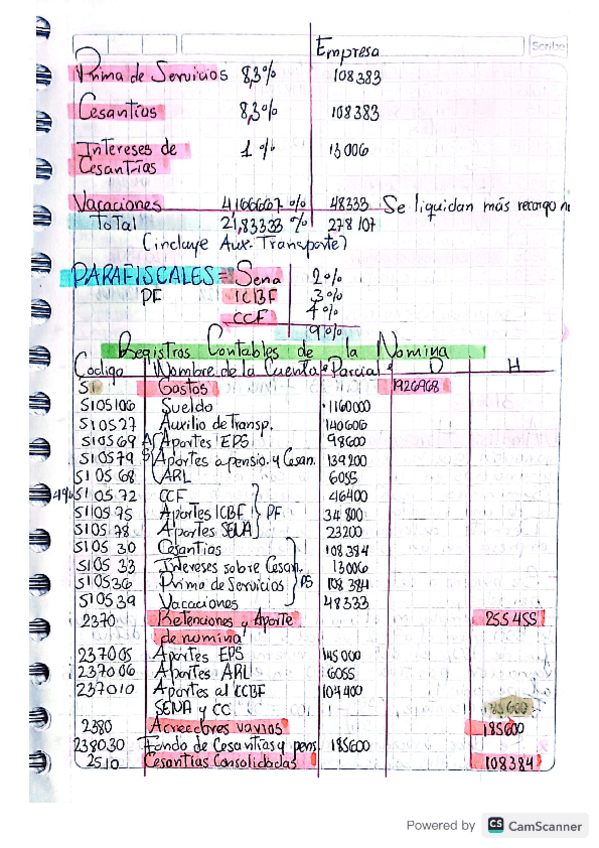 Empresa
Scribe
Prima de Servicios 8,3% 108383
Cesantías 8,3% 108383
Intereses de 1% 13006
Cesantías
Vacaciones 4,166667% 48333 Se liquidan más recargo
Total 21,83333% 278107
(incluye Aux. Transporte)
PARAFISCALES = Sena 2%
PF ICBF 3%
CCF 4%
9%
Registros Contables de la Nomina
Codigo Nombre de la Cuenta Parcial D H
51 Gastos 1926968
5105106 Sueldo 1160000
510527 Auxilio de Transp. 140606
510569 Aportes EPS 98600
510579 Aportes a pensio. y Cesan. 139200
510568 ARL 6055
4% 510572 CCF 46400
510575 Aportes ICBF PF 34800
510578 Aportes SENA 23200
510530 Cesantias 108384
510533 Intereses sobre Cesan. 13006
510536 Prima de Servicios PS 108384
510539 Vacaciones 48333
2370 Retenciones y Aporte 255455
de nomina
237005 Aportes EPS 145000
237006 Aportes ARL 6055
237010 Aportes al ICBF 104400
SENA y CC
2380 Acreedores varios 185600
238030 Fondo de Cesantias y pens 185600
2510 Cesantias Consolidadas 108384
Powered by CS CamScanner